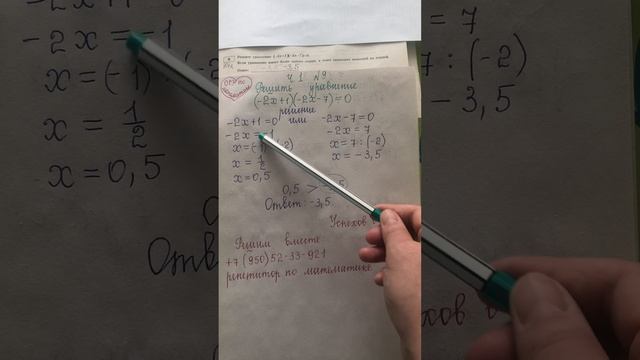 Решите уравнение (-2x+1)(-2x-7)=0.
Если уравнение имеет более одного корня, в ответ запишите меньший из корней.
Ответ: -3,5
Ч.1 №9
Решить уравнение
(-2x+1)(-2x-7)=0
решение
-2x+1=0 или -2x-7=0
-2x=-1 -2x=7
x=(-1) -2) x=7:(-2)
x=1/2 x=-3,5
x=0,5
0,5 > 5
Ответ: -3,5
Успехов
Решим вместе
+7(950)52-33-921
репетитор по математике